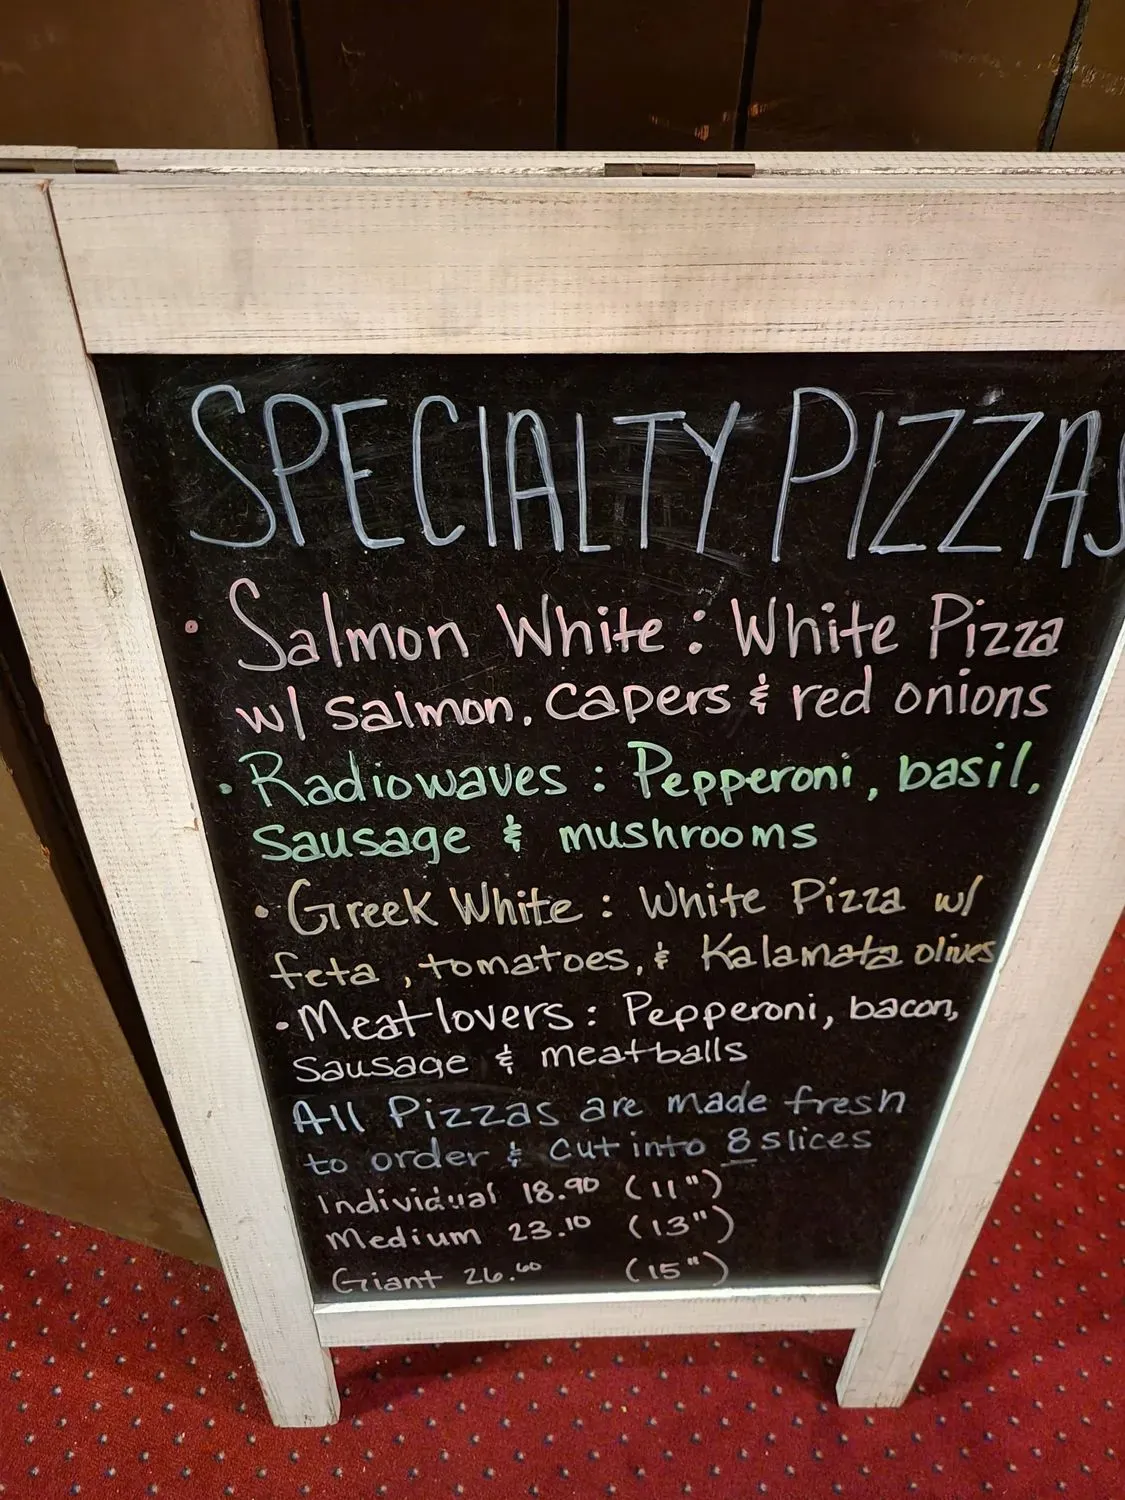 SPECIALTY PIZZAS
• Salmon White: White Pizza
w/ salmon, capers & red onions
• Radiowaves: Pepperoni, basil,
sausage & mushrooms
• Greek White: White Pizza w/
feta, tomatoes, & Kalamata olives
• Meat lovers: Pepperoni, bacon,
sausage & meatballs
All Pizzas are made fresh
to order & cut into 8 slices
Individual 18.90 (11")
Medium 23.10 (13")
Giant 26.60 (15")